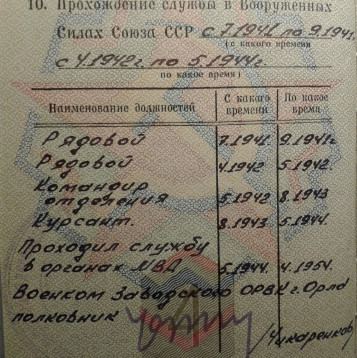 10. Прохождение службы в Вооруженных
Силах Союза ССР с 7.1941 по 9.1941г.
(с какого времени
с 4.1942г. по 5.1944г.
по какое время)
Наименование должностей С какого времени По какое время
Рядовой 7.1941 9.1941г
Рядовой 4.1942 5.1942.
Командир
отделения 5.1942 8.1943
Курсант. 8.1943 5.1944.
Проходил службу
в органах МВД 5.1944. 4.1954.
Военком Заводского ОРВК г. Орла
полковник /Чикаренков/